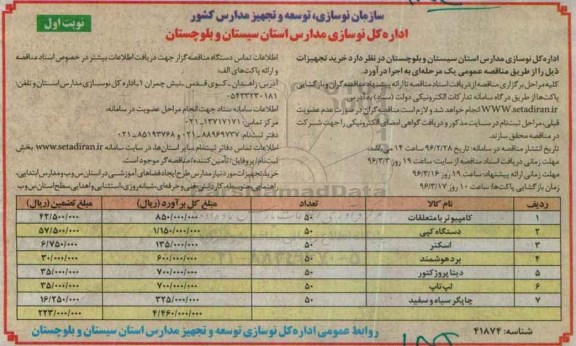 نوبت اول
سازمان نوسازی، توسعه و تجهیز مدارس کشور
اداره کل نوسازی مدارس استان سیستان و بلوچستان
اداره کل نوسازی مدارس استان سیستان و بلوچستان در نظر دارد خرید تجهیزات
ذیل را از طریق مناقصه عمومی یک مرحله‌ای به اجرا درآورد.
کلیه مراحل برگزاری مناقصه از دریافت اسناد مناقصه تا ارائه پیشنهاد مناقصه‌گران و بازگشایی
پاکت‌ها از طریق درگاه سامانه تدارکات الکترونیکی دولت (ستاد) به آدرس
WWW.setadiran.ir انجام خواهد شد و لازم است مناقصه‌گران در صورت عدم عضویت
قبلی، مراحل ثبت‌نام در سایت مذکور و دریافت گواهی امضای الکترونیکی را جهت شرکت
در مناقصه محقق سازند.
تاریخ انتشار مناقصه در سامانه: تاریخ ۹۶/۲/۲۸ ساعت ۱۴ می‌باشد.
مهلت زمانی دریافت اسناد مناقصه از سایت: ساعت ۱۹ روز ۹۶/۳/۳
مهلت زمانی ارائه پیشنهاد: ساعت ۱۹ روز ۹۶/۳/۱۶
زمان بازگشایی پاکت‌ها: ساعت ۱۰ روز ۹۶/۳/۱۷
اطلاعات تماس دستگاه مناقصه‌گزار جهت دریافت اطلاعات بیشتر در خصوص اسناد مناقصه
و ارائه پاکت‌های الف:
آدرس: زاهدان ـ کوی قدس ـ نبش چمران ۱ ـ اداره کل نوسازی مدارس استان و تلفن:
اطلاعات سامانه ستاد جهت انجام مراحل عضویت در سامانه:
مرکز تماس: ۲۷۳۱۳۱۳۱ـ۰۲۱
دفتر ثبت‌نام: ۸۸۹۶۹۷۳۷ـ۰۲۱ و ۸۵۱۹۳۷۶۸ـ۰۲۱
اطلاعات تماس دفاتر ثبت‌نام سایر استان‌ها، در سایت سامانه www.setadiran.ir بخش
ثبت‌نام/پروفایل تأمین کننده/مناقصه‌گر موجود است.
ردیف نام کالا تعداد مبلغ کل برآورد (ریال) مبلغ تضمین (ریال)
۱ کامپیوتر با متعلقات ۵۰ ۸۵۰/۰۰۰/۰۰۰ ۴۲/۵۰۰/۰۰۰
۲ دستگاه کپی ۵۰ ۱/۱۵۰/۰۰۰/۰۰۰ ۵۷/۵۰۰/۰۰۰
۳ اسکنر ۵۰ ۱۳۵/۰۰۰/۰۰۰ ۶/۷۵۰/۰۰۰
۴ برد هوشمند ۵۰ ۶۰۰/۰۰۰/۰۰۰ ۳۰/۰۰۰/۰۰۰
۵ دیتا پروژکتور ۵۰ ۷۰۰/۰۰۰/۰۰۰ ۳۵/۰۰۰/۰۰۰
۶ لپ تاپ ۵۰ ۷۰۰/۰۰۰/۰۰۰ ۳۵/۰۰۰/۰۰۰
۷ چاپگر سیاه و سفید ۵۰ ۳۲۵/۰۰۰/۰۰۰ ۱۶/۲۵۰/۰۰۰
۴/۴۶۰/۰۰۰/۰۰۰ ۲۲۳/۰۰۰/۰۰۰
شناسه: ۴۱۸۷۴
روابط عمومی اداره کل نوسازی توسعه و تجهیز مدارس استان سیستان و بلوچستان